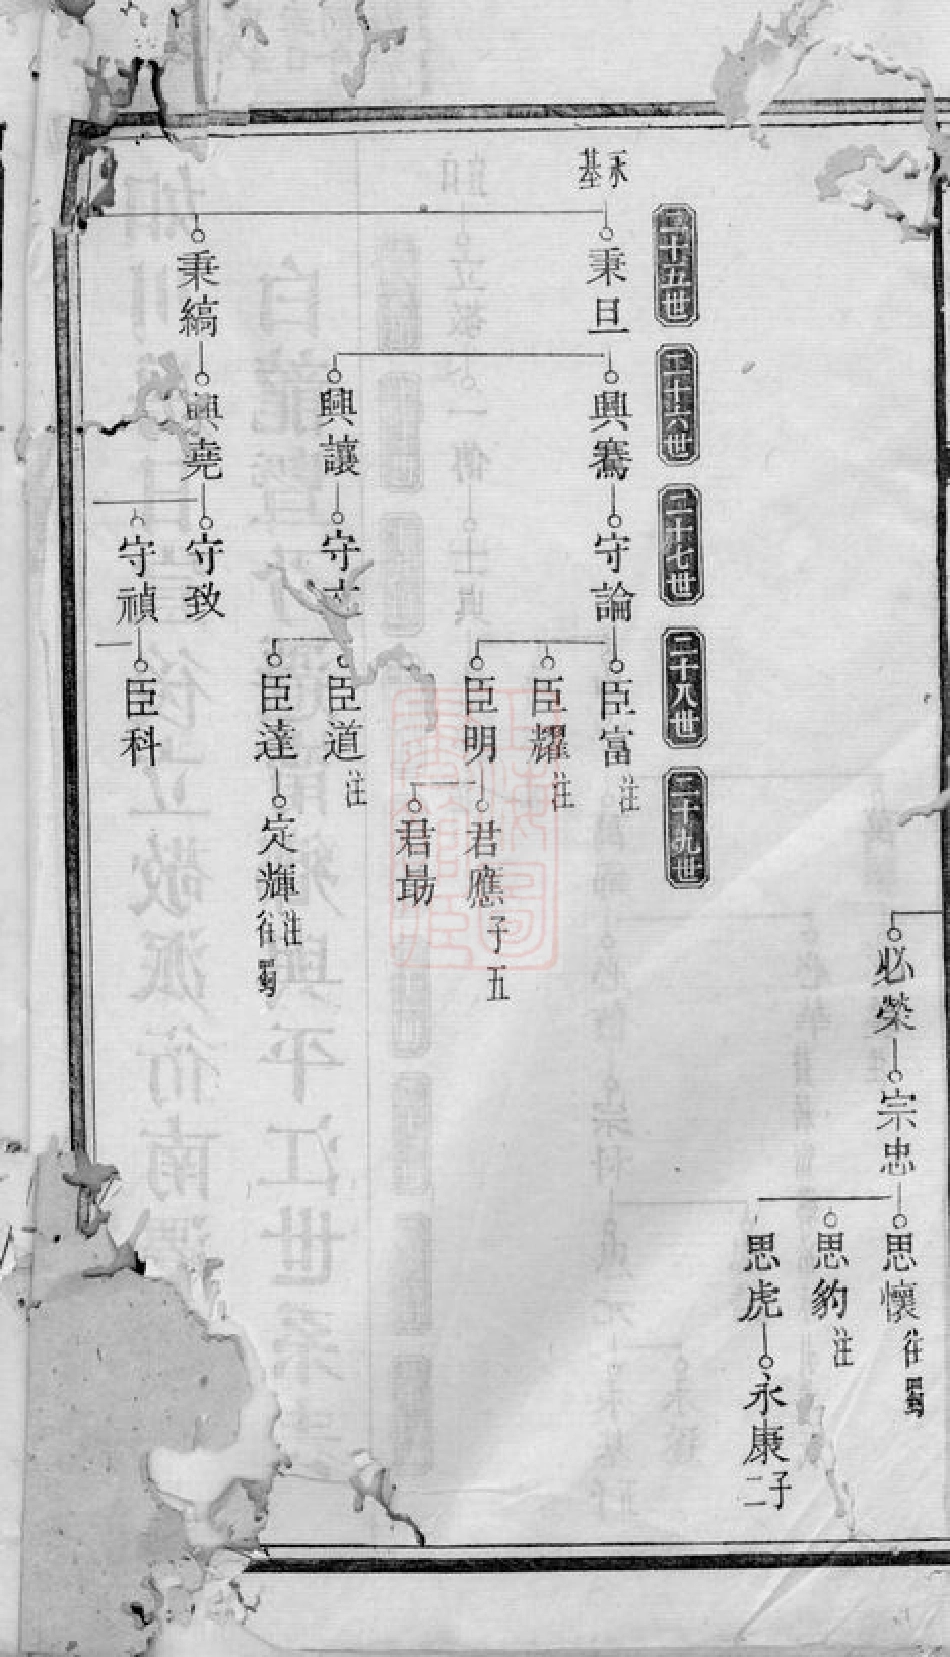 必榮
宗忠
思懷
往蜀
思豹
注
思虎
永康
子二
二十五世
二十六世
二十七世
二十八世
二十九世
永基
秉旦
興騫
守論
臣富
注
臣耀
注
臣明
君應
子五
君勗
興讓
守
臣道
注
臣達
定輝
注
往蜀
秉縞
興堯
守致
守禎
臣科